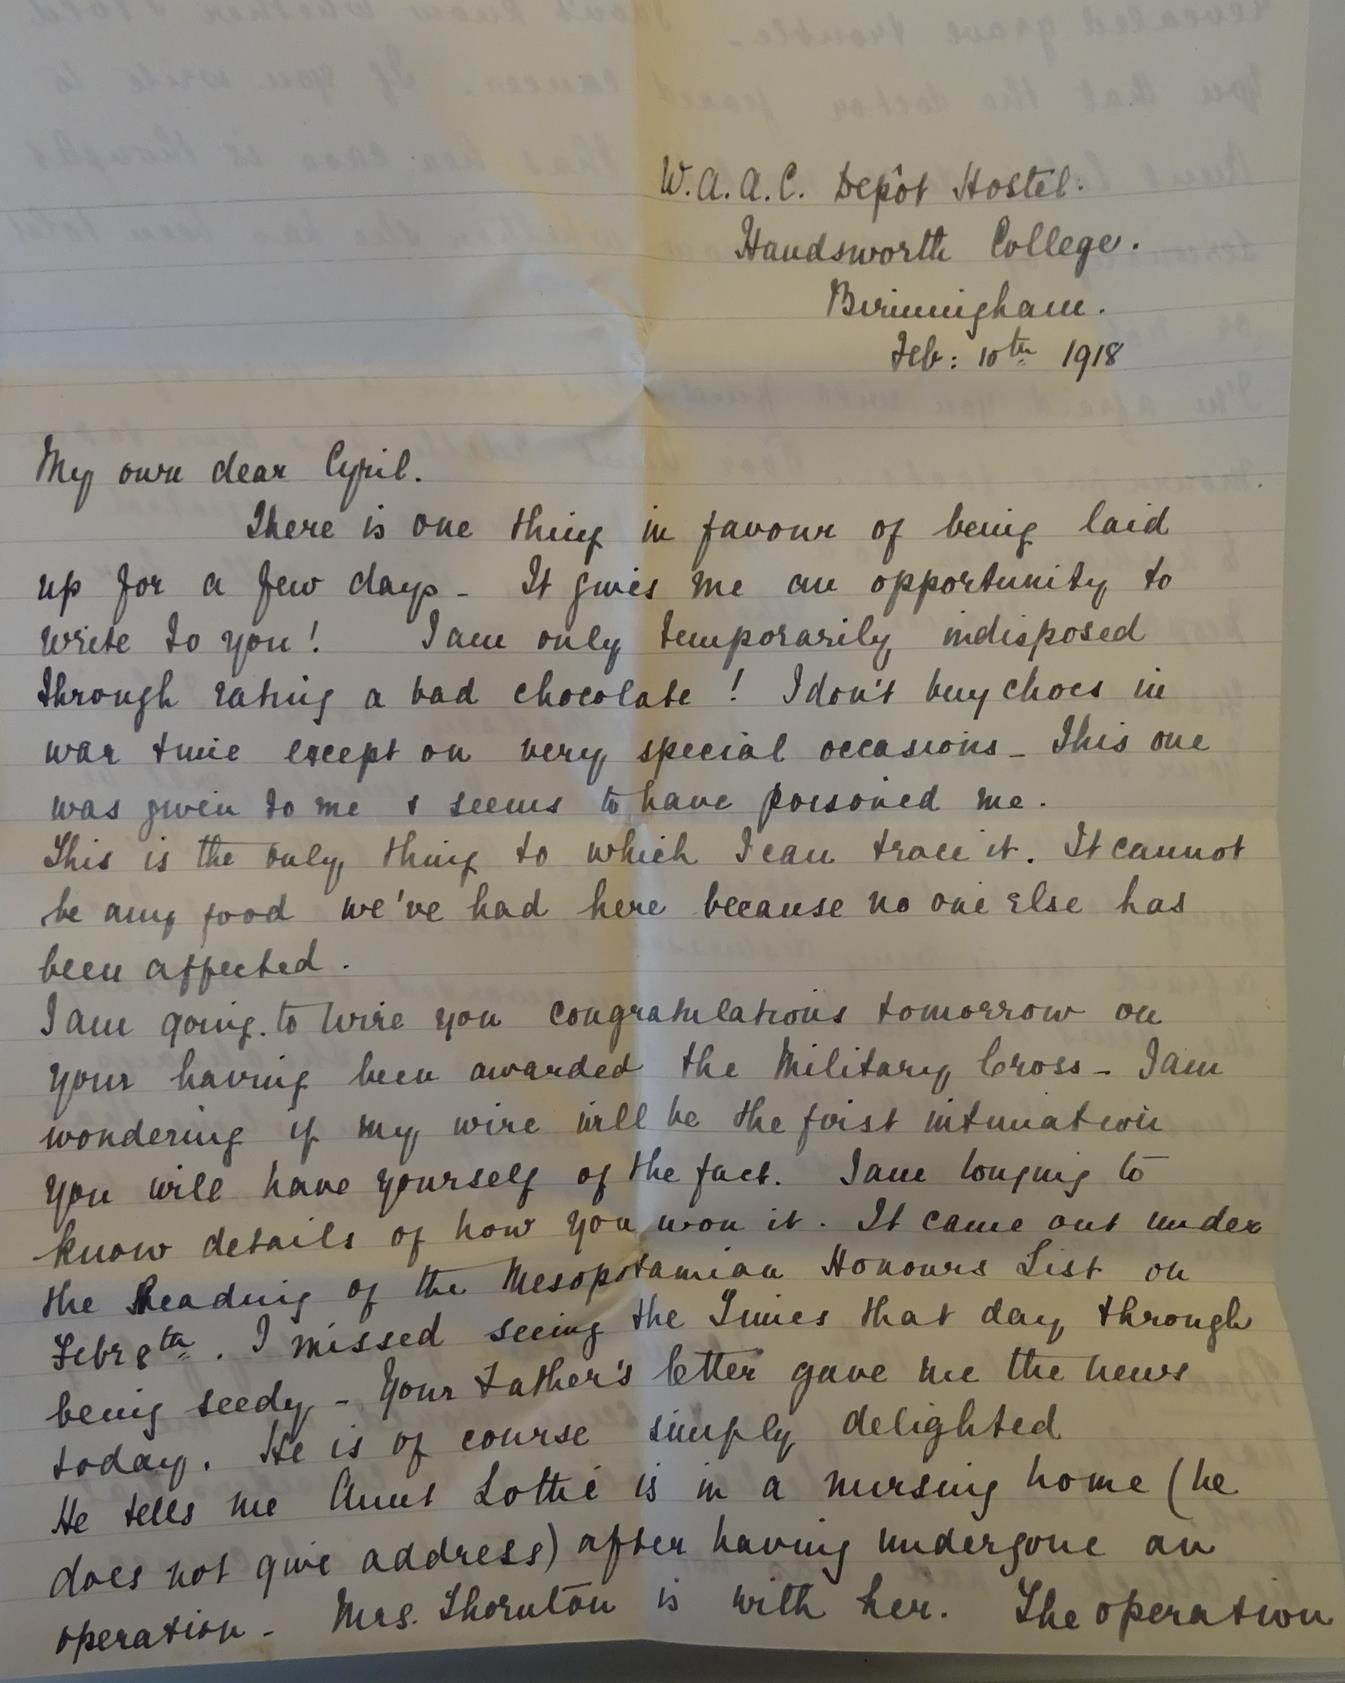 W.A.A.C. Depôt Hostel.
Handsworth College.
Birmingham.
Feb: 10th 1918
My own dear Cyril.
There is one thing in favour of being laid
up for a few days - It gives me an opportunity to
write to you! I am only temporarily indisposed
through eating a bad chocolate! I don't buy chocs in
war time except on very special occasions - This one
was given to me & seems to have poisoned me.
This is the only thing to which I can trace it. It cannot
be any food we've had here because no one else has
been affected.
I am going to wire you congratulations tomorrow on
your having been awarded the Military Cross - I am
wondering if my wire will be the first intimation
you will have yourself of the fact. I am longing to
know details of how you won it. It came out under
the heading of the Mesopotamian Honours List on
Febr 8th. I missed seeing the Times that day through
being seedy - Your Father's letter gave me the news
today. He is of course simply delighted
He tells me Aunt Lottie is in a nursing home (he
does not give address) after having undergone an
operation - Mrs. Thornton is with her. The operation